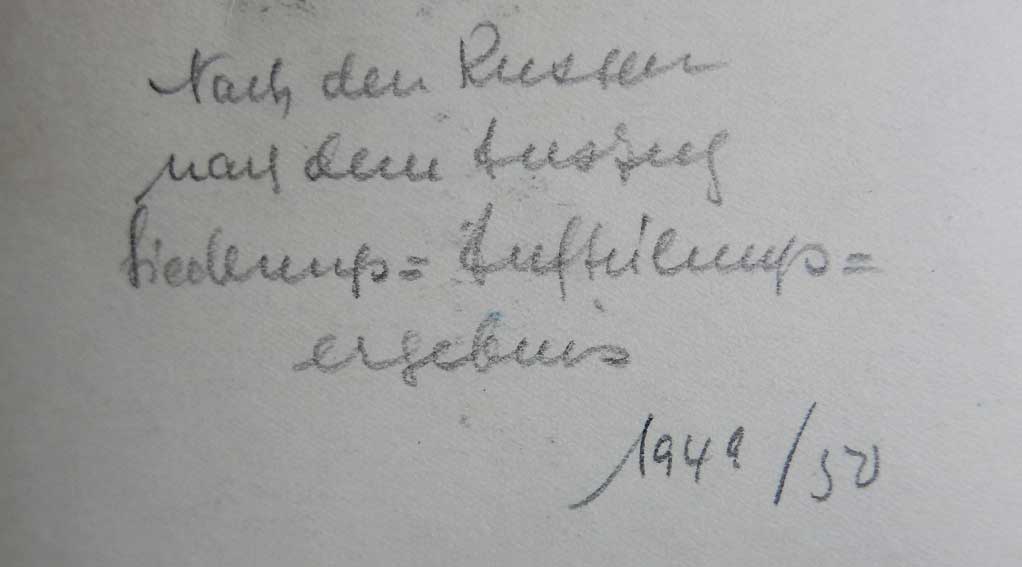 Nach den Russen
nach dem Auszug
Siedlungs= Aufteilungs=
ergebnis
1949/50